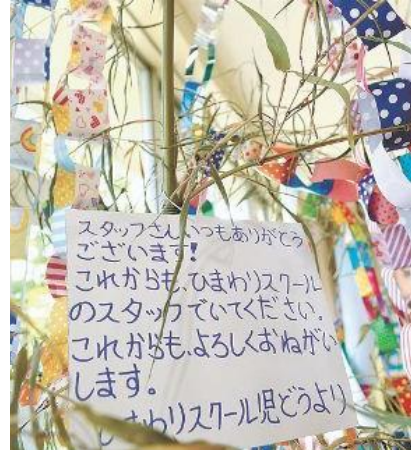 スタッフさん、いつもありがとう
ございます!
これからも、ひまわりスクール
のスタッフでいてください。
これからも、よろしくおねがい
します。
ひまわりスクール児どうより